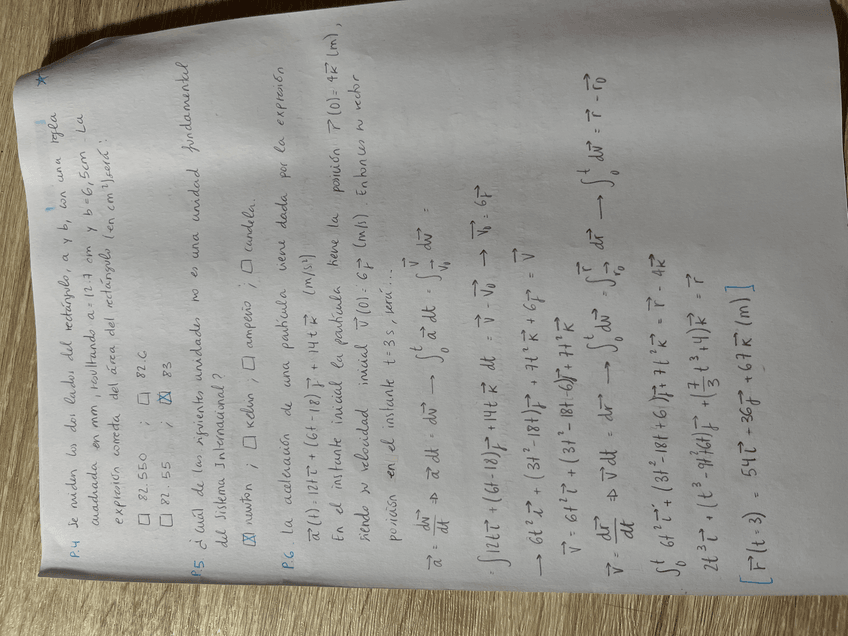 P.4 Se miden los dos lados del rectángulo, a y b, con una regla
cuadrada en mm, resultando a=12.7 cm y b=6,5cm. La
expresión correcta del área del rectángulo (en cm²) será:
□ 82.550 ; □ 82.6
□ 82.55 ; ☒ 83
P.5 ¿Cuál de las siguientes unidades no es una unidad fundamental
del Sistema Internacional?
☒ newton ; □ kelvin ; □ amperio ; □ candela.
P.6. La aceleración de una partícula viene dada por la expresión
a⃗(t)=12t i⃗ + (6t-18) j⃗ + 14t k⃗ (m/s²)
En el instante inicial la partícula tiene la posición r⃗(0)=4k⃗ (m),
siendo su velocidad inicial v⃗(0)=6j⃗ (m/s). Entonces su vector
posición en el instante t=3s, será...
a⃗ = dv⃗/dt ⇒ a⃗ dt = dv⃗ → ∫₀ᵗ a⃗ dt = ∫_v⃗₀^v⃗ dv⃗ =
= ∫12t i⃗ + (6t-18) j⃗ + 14t k⃗ dt = v⃗ - v⃗₀ → v⃗₀ = 6j⃗
→ 6t² i⃗ + (3t²-18t) j⃗ + 7t² k⃗ + 6j⃗ = v⃗
v⃗ = 6t² i⃗ + (3t²-18t-6) j⃗ + 7t² k⃗
v⃗ = dr⃗/dt ⇒ v⃗ dt = dr⃗ → ∫₀ᵗ dv⃗ = ∫_r⃗₀^r⃗ dr⃗ → ∫₀ᵗ dv⃗ = r⃗ - r⃗₀
∫₀ᵗ 6t² i⃗ + (3t²-18t+6) j⃗ + 7t² k⃗ = r⃗ - 4k⃗
2t³ i⃗ + (t³-9t²+6t) j⃗ + (7/3 t³+4) k⃗ = r⃗
[r⃗(t=3) = 54 i⃗ - 36 j⃗ + 67 k⃗ (m)]